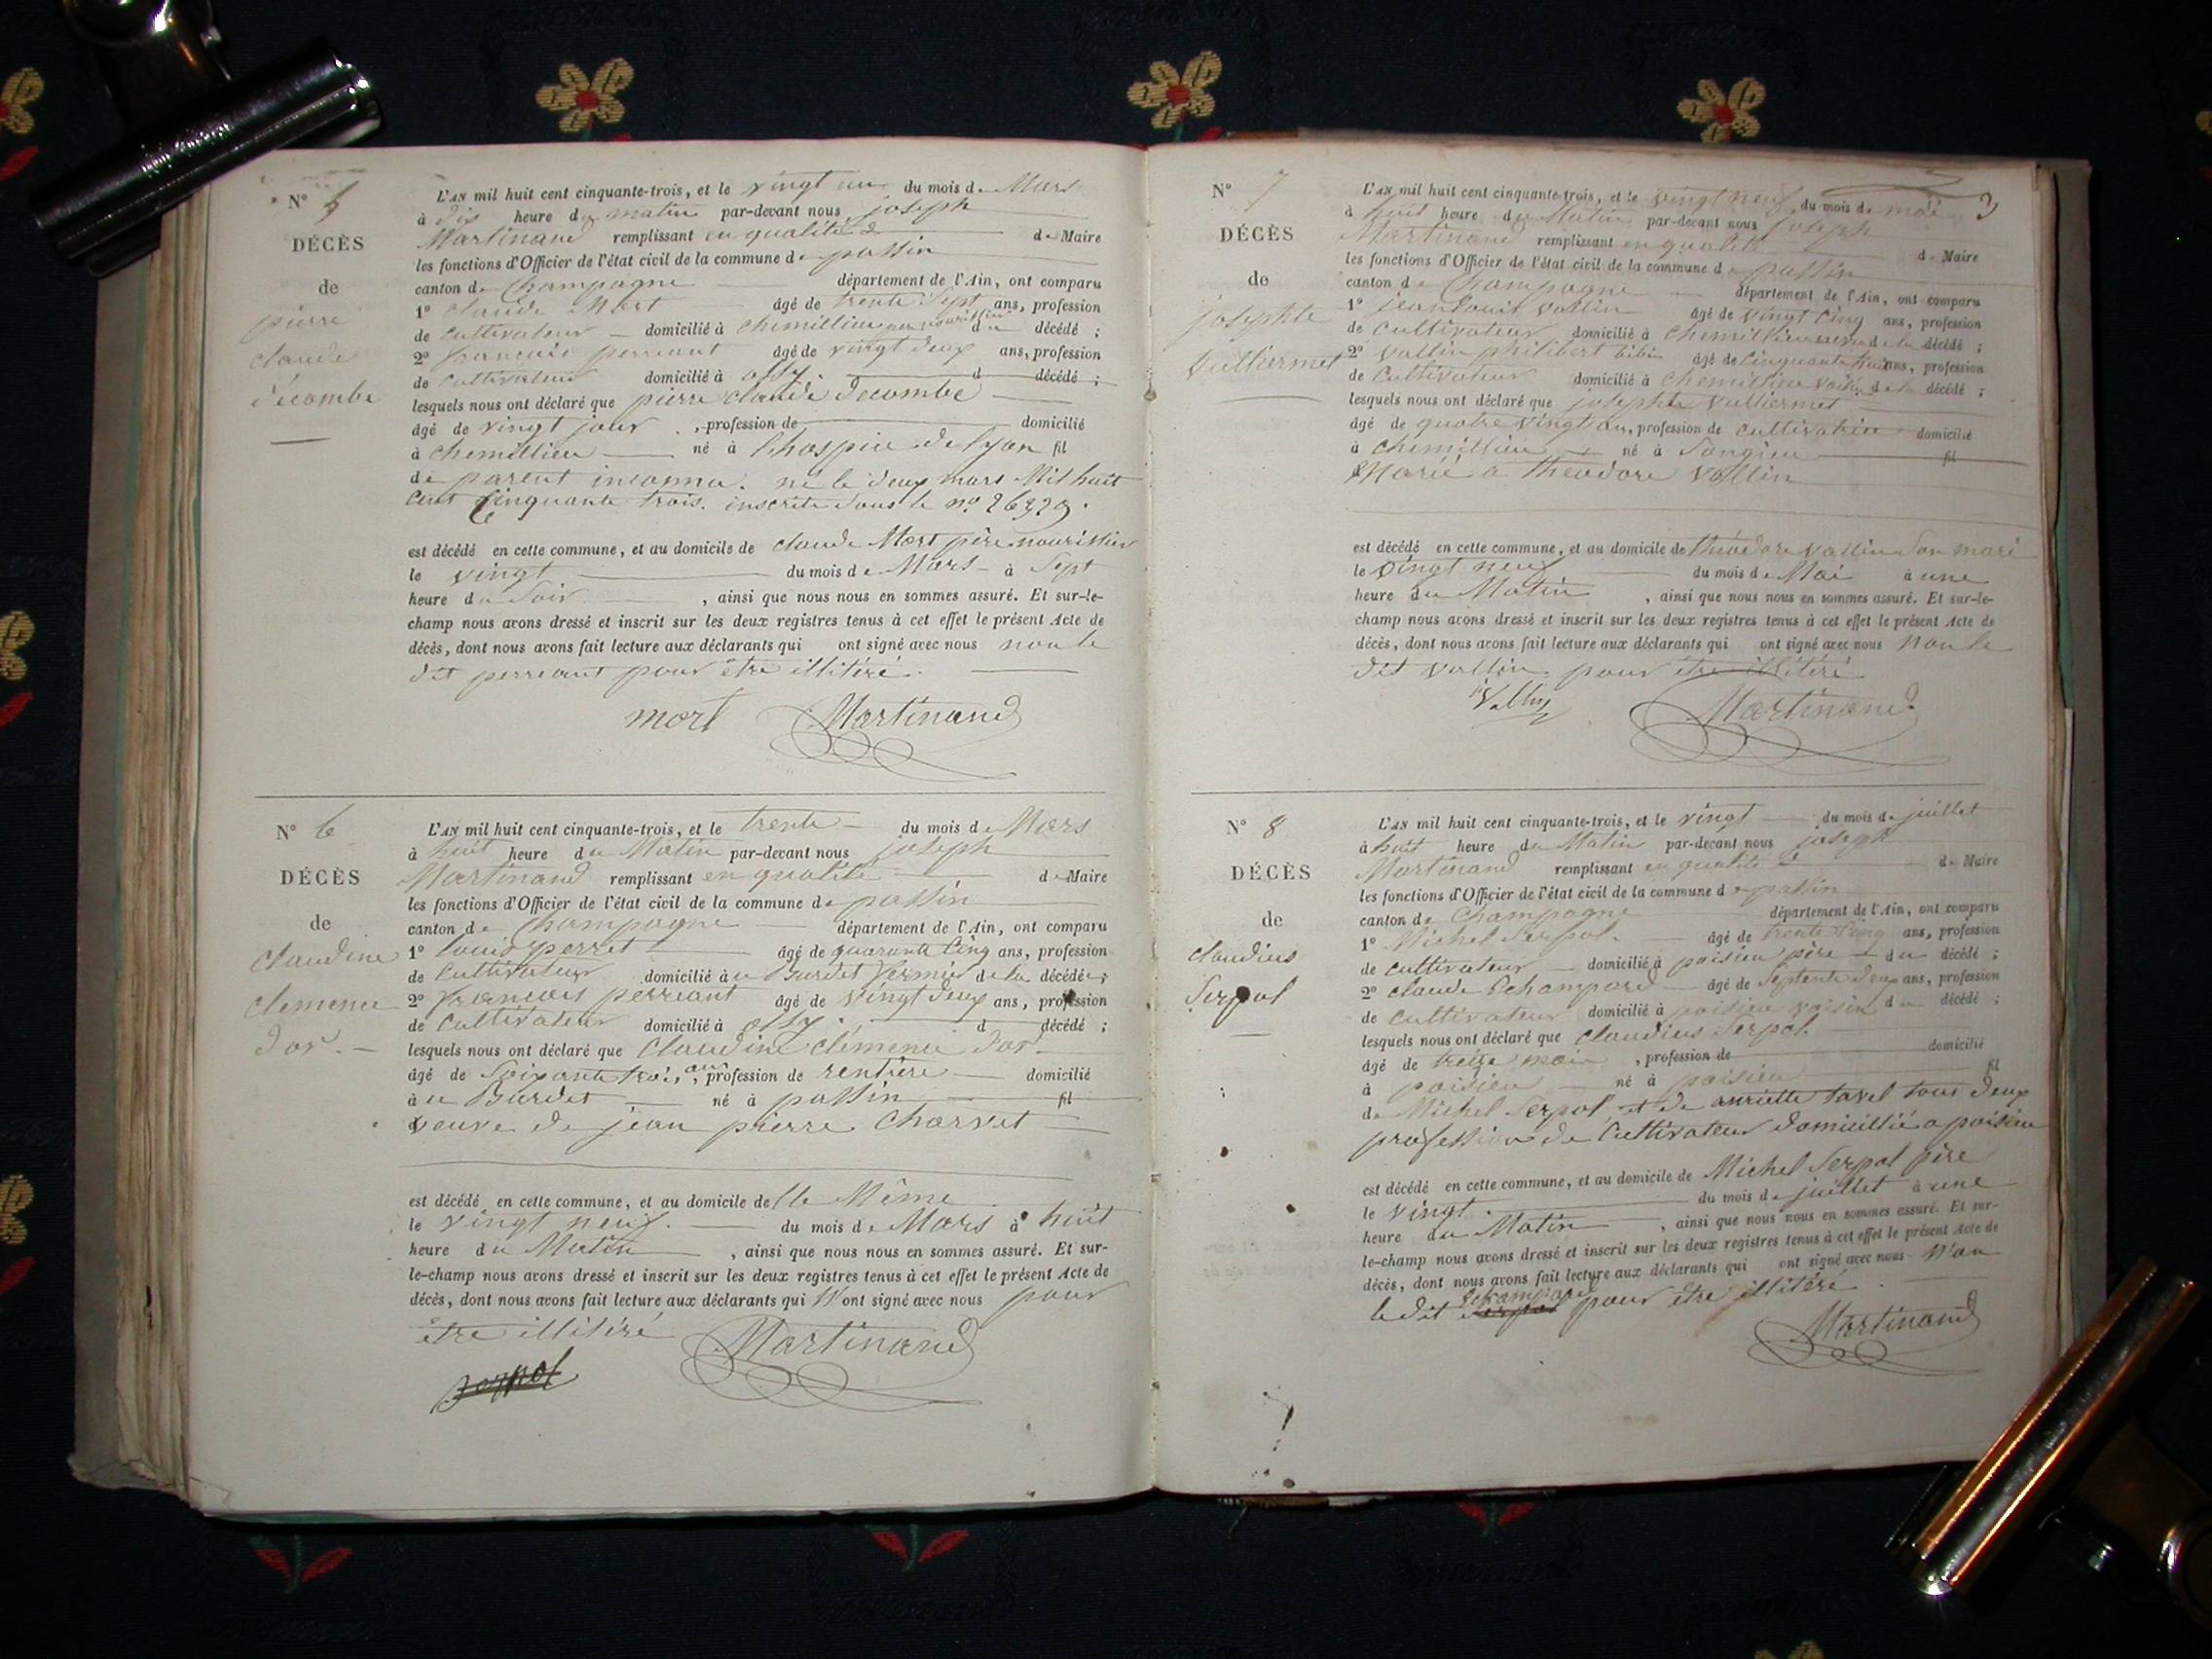 N° 5
DÉCÈS
de
pierre
claude
decombe
L'AN mil huit cent cinquante-trois, et le vingt un du mois de Mars
à dix heure du matin par-devant nous joseph
Martinand remplissant en qualité d de Maire
les fonctions d'Officier de l'état civil de la commune de passin
canton de Champagne département de l'Ain, ont comparu
1° claude Mort âgé de trente Sept ans, profession
de cultivateur domicilié à chemillieu père nourissier du décédé ;
2° francois perreant âgé de vingt deux ans, profession
de cultivateur domicilié à ossy d décédé ;
lesquels nous ont déclaré que pierre claude decombe
âgé de vingt jour , profession de domicilié
à chemillieu né à lhospice de lyon fil
de parent inconnu. né le deux mars Mil huit
Cent Cinquante trois. inscrite sous le no 26329.
est décédé en cette commune, et au domicile de claude Mort père nourissier
le vingt du mois de Mars à Sept
heure du Soir , ainsi que nous nous en sommes assuré. Et sur-le-
champ nous avons dressé et inscrit sur les deux registres tenus à cet effet le présent Acte de
décès, dont nous avons fait lecture aux déclarants qui ont signé avec nous non le
dit perreant pour être illitéré.
mort Martinand
N° 6
DÉCÈS
de
claudine
clemence
dor.
L'AN mil huit cent cinquante-trois, et le trente du mois de Mars
à huit heure du Matin par-devant nous joseph
Martinand remplissant en qualité de Maire
les fonctions d'Officier de l'état civil de la commune de passin
canton de Champagne département de l'Ain, ont comparu
1° louis perret âgé de quarante Cinq ans, profession
de Cultivateur domicilié à u Burdet fermier de la décédée ;
2° francois perreant âgé de vingt deux ans, profession
de Cultivateur domicilié à ossy. d décédé ;
lesquels nous ont déclaré que Claudine clémence dor
âgé de Soixante trois ans, profession de rentière domicilié
à u Burdet né à passin fil
veuve de jean pierre Charvet
est décédé en cette commune, et au domicile de lle Même
le vingt neuf. du mois de Mars à huit
heure du Matin , ainsi que nous nous en sommes assuré. Et sur-
le-champ nous avons dressé et inscrit sur les deux registres tenus à cet effet le présent Acte de
décès, dont nous avons fait lecture aux déclarants qui N'ont signé avec nous pour
être illitéré Martinand
N° 7
DÉCÈS
de
josephte
Vulliermet
3
L'AN mil huit cent cinquante-trois, et le vingt neuf du mois de mai
à huit heure du Matin par-devant nous joseph
Martinand remplissant en qualité de Maire
les fonctions d'Officier de l'état civil de la commune de passin
canton de Champagne département de l'Ain, ont comparu
1° jean louis vallin âgé de vingt Cinq ans, profession
de Cultivateur domicilié à Chemillieu de la décédé ;
2° vallin philibert bibi âgé de Cinquante huit ans, profession
de Cultivateur domicilié à Chemillieu voisin de la décédé ;
lesquels nous ont déclaré que josephte Vulliermet
âgé de quatre vingt an, profession de cultivatrice domicilié
à chemillieu né à Songieu fil
Marié a theodore Vallin
est décédé en cette commune, et au domicile de théodore vallin Son mari
le vingt neuf du mois de Mai à une
heure du Matin , ainsi que nous nous en sommes assuré. Et sur-le-
champ nous avons dressé et inscrit sur les deux registres tenus à cet effet le présent Acte de
décès, dont nous avons fait lecture aux déclarants qui ont signé avec nous non le
dit vallin pour être illitéré
Vallin Martinand
N° 8
DÉCÈS
de
claudius
Serpol
L'AN mil huit cent cinquante-trois, et le vingt du mois de juillet
à huit heure du Matin par-devant nous joseph
Martinand remplissant en qualité d de Maire
les fonctions d'Officier de l'état civil de la commune de passin
canton de Champagne département de l'Ain, ont comparu
1° Michel Serpol. âgé de trente Cinq ans, profession
de cultivateur domicilié à poisieu père du décédé ;
2° claude Echampard âgé de Septente deux ans, profession
de cultivateur domicilié à poisieu voisin du décédé ;
lesquels nous ont déclaré que claudius Serpol.
âgé de treize mois , profession de domicilié
à poisieu né à poisieu fil
de Michel Serpol et de anriette tavel tous deux
profession de Cultivateur domicillié a poisieu
est décédé en cette commune, et au domicile de Michel Serpol père
le vingt. du mois de juillet à une
heure du Matin , ainsi que nous nous en sommes assuré. Et sur-
le-champ nous avons dressé et inscrit sur les deux registres tenus à cet effet le présent Acte de
décès, dont nous avons fait lecture aux déclarants qui ont signé avec nous Non
le dit Echampard pour être illitéré
Martinand